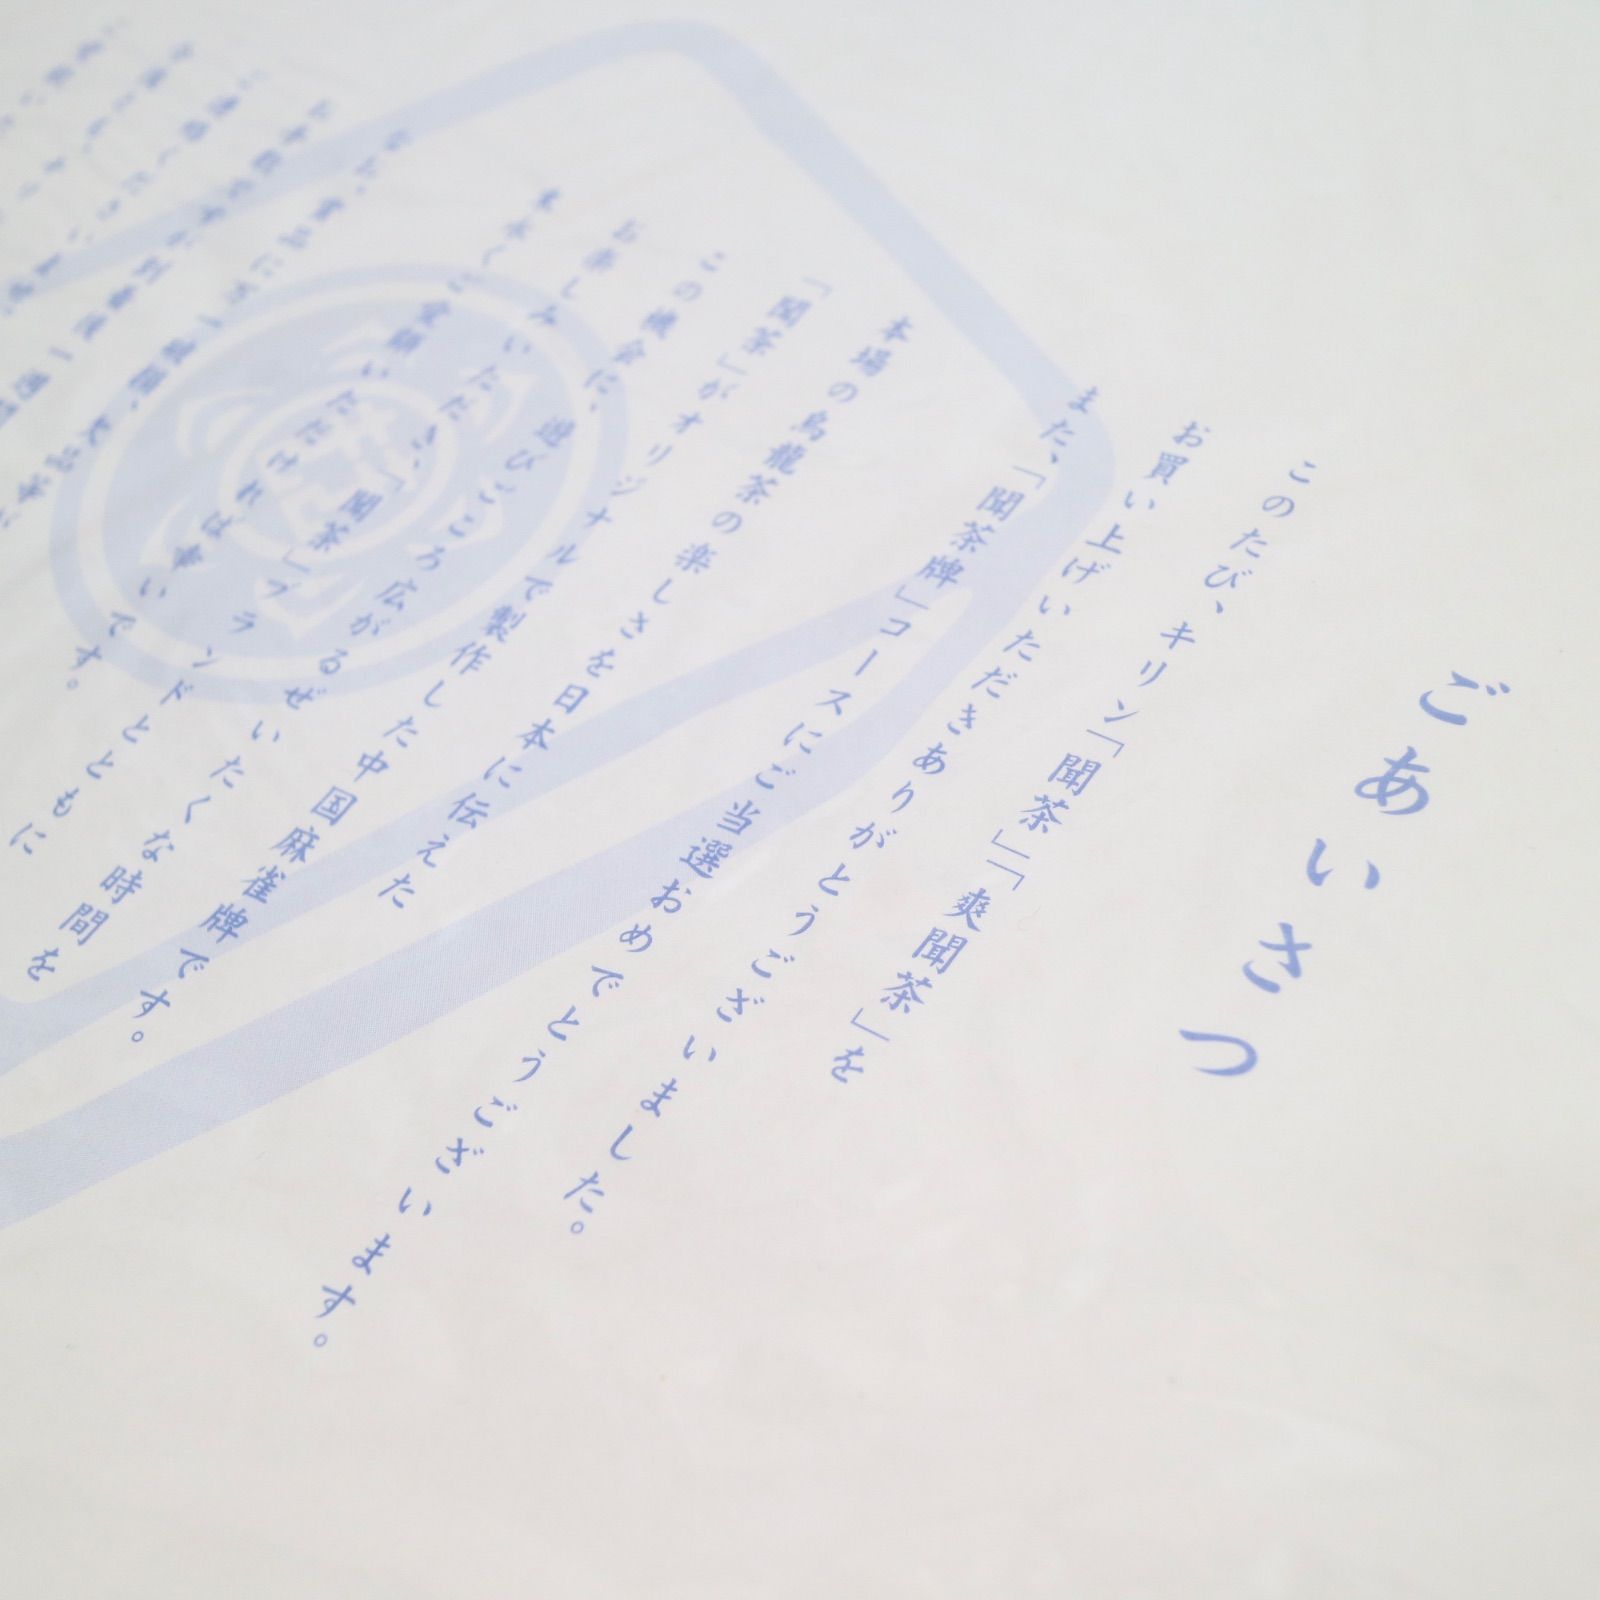 ごあいさつ
このたび、キリン「聞茶」「爽聞茶」を
お買い上げいただきありがとうございました。
また、「聞茶牌」コースにご当選おめでとうございます。
本場の烏龍茶の楽しさを日本に伝えた
「聞茶」がオリジナルで製作した中国麻雀牌です。
この機会に、遊びごころ広がるぜいたくな時間を
お楽しみいただき、「聞茶」ブランドとともに
末永くご愛顧いただければ幸いです。
なお、賞品に万一破損、欠品等が
お手数ですが到着後一週間